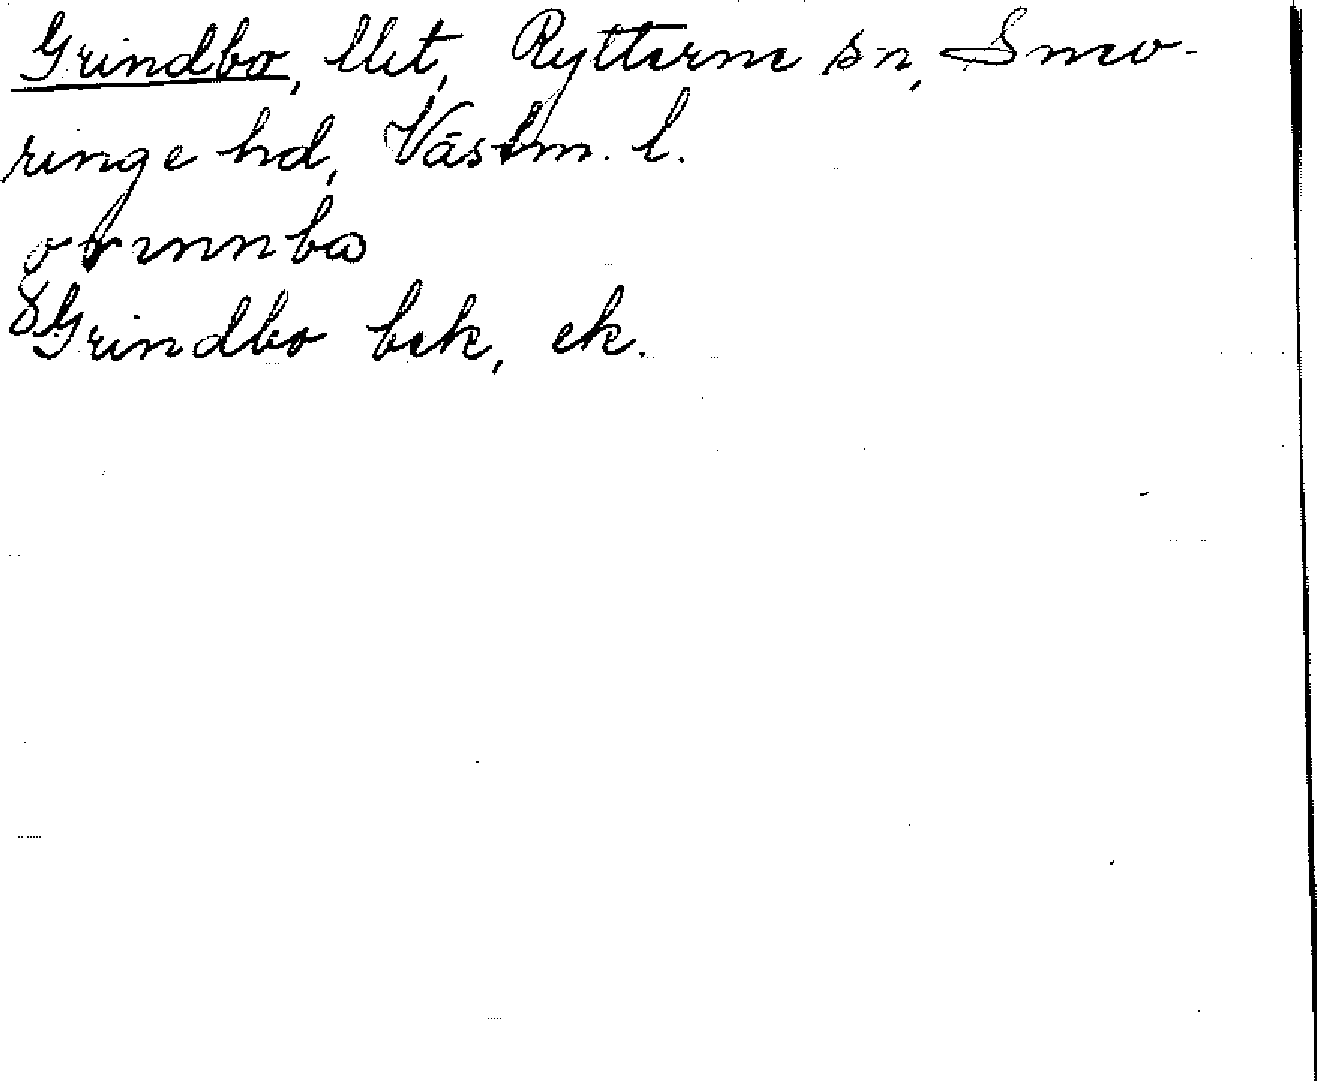 Grindbo, llet, Rytterne sn, Snev-
ringe hd, Västm. l.
Grindbo bek, ek.